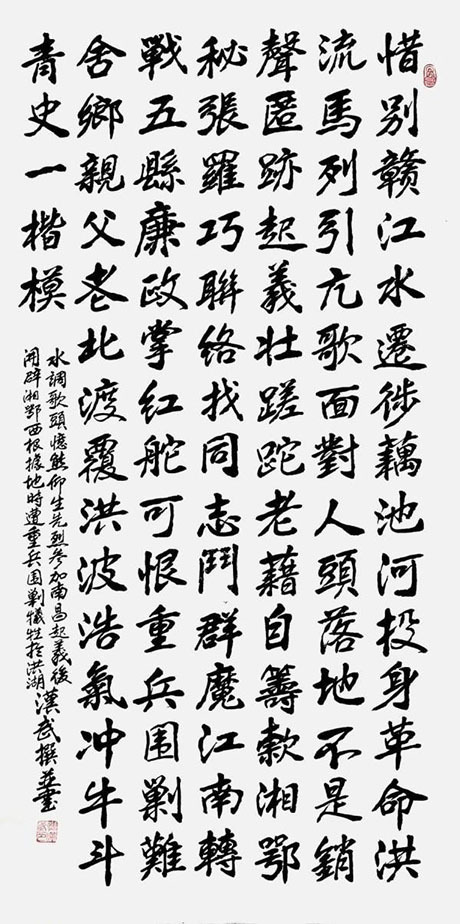 惜别赣江水遷徙藕池河投身革命洪
流馬列引亢歌面對人頭落地不是銷
聲匿跡起義壯蹉跎老藉自籌款湘鄂
秘張羅巧聯絡找同志鬥群魔江南轉
戰五縣廉政掌紅舵可恨重兵围剿難
舍鄉親父老北渡覆洪波浩氣冲牛斗
青史一楷模
水調歌頭憶熊仰生先烈参加南昌起義後
開辟湘鄂西根據地時遭重兵围剿犧牲於洪湖漢武撰并書